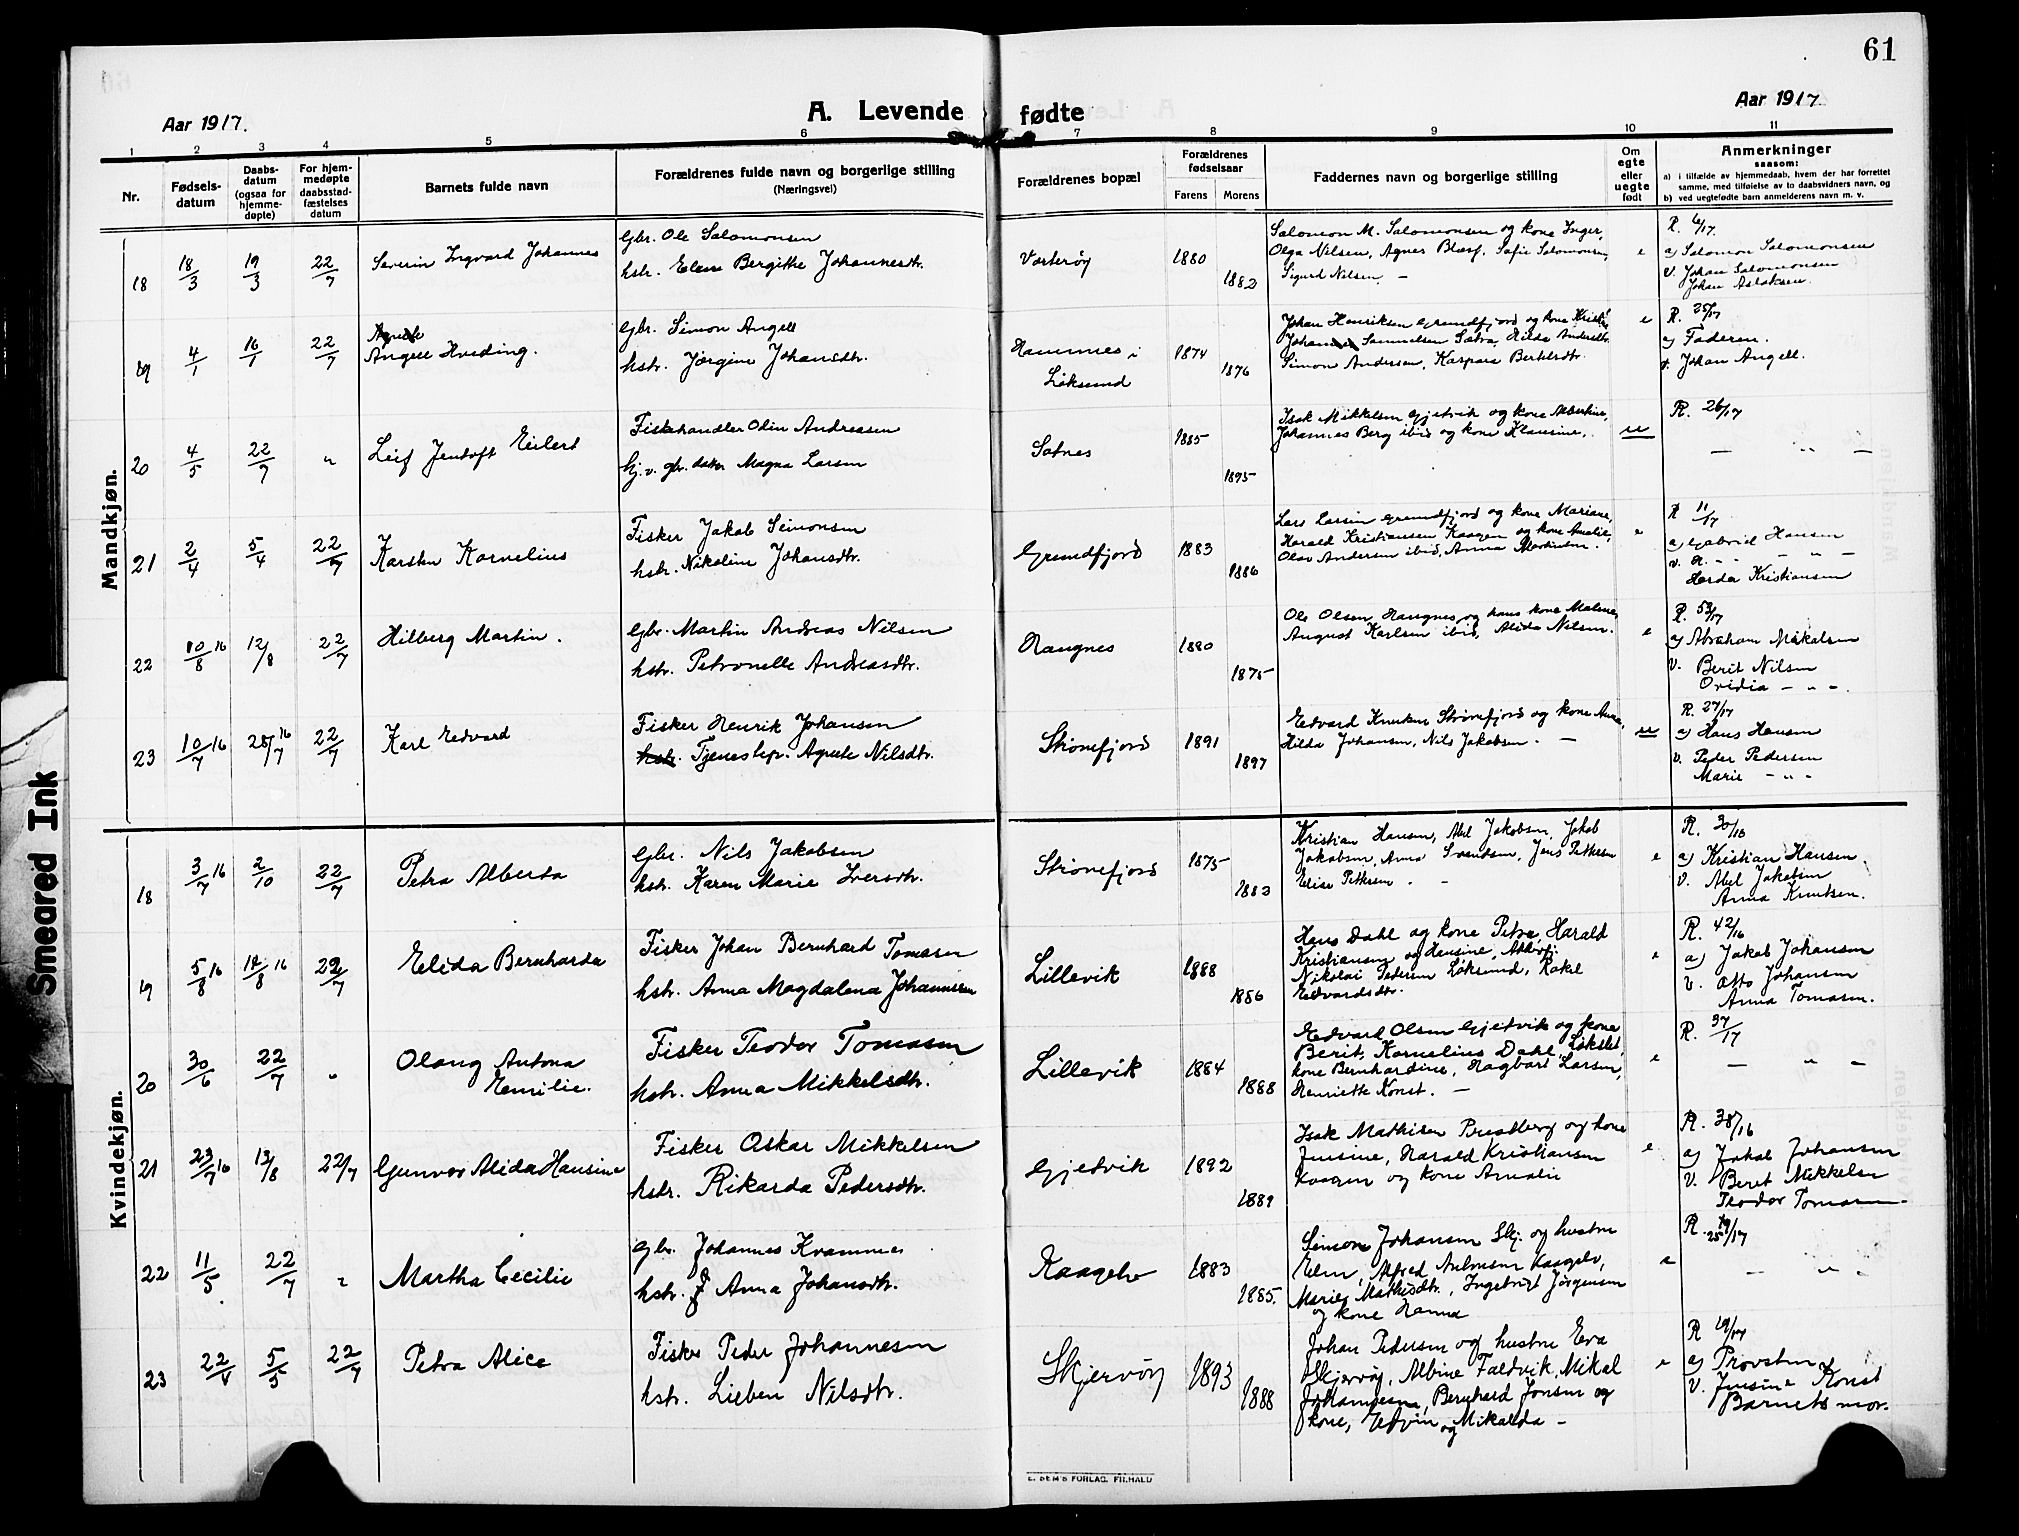 61
Aar 1917.
A. Levende fødte
Aar 1917.
1 2 3 4 5 6 7 8 9 10 11
Nr.
Fødsels-
datum
Daabs-
datum
(ogsaa for
hjemme-
døpte)
For hjem-
medøpte
daabsstad-
fæstelses
datum
Barnets fulde navn
Forældrenes fulde navn og borgerlige stilling
(Næringsvei)
Forældrenes bopæl
Forældrenes
fødselsaar
Farens Morens
Faddernes navn og borgerlige stilling
Om
egte
eller
uegte
født
Anmerkninger
saasom:
a) i tilfælde av hjemmedaab, hvem der har forrettet
samme, med tilføielse av to daabsvidners navn, og
b) ved uegtefødte barn anmelderens navn m. v.
Mandkjøn.
18 18/3 19/3 22/7 Severin Ingvard Johannes
Gbr. Ole Salomonsen
hstr. Elen Bergithe Johannesdtr.
Vorterøy 1880 1882
Salomon M. Salomonsen og kone Inger,
Olga Nilsen, Agnes Blæsf. Sofie Salomonsen,
Sigurd Nilsen. —
e
R. 6/17.
a) Salomon Salomonsen
v. Johan Salomonsen
Johan Aslaksen.
19 4/1 16/1 22/7
Angell Hveding.
Gbr. Simon Angell
hstr. Jørgine Johansdtr.
Hamnes i
Løksund
1874 1876
Johan Henriksen Grundfjord og kone
Samuelsen Hilda Andersdtr.
Simon Andersen, Kaspara Bertelsdtr.
e
R. 25/17
a) Faderen.
v. Johan Angell.
20 4/5 22/7 " Leif Jentoft Eilert
Fiskehandler Odin Andreasen
Gbr. datter Magna Larsen
Satnes 1885 1895
Isak Mikkelsen Gjetvik og kone Albertine,
Johannes Berg ibid og kone Klausine.
u
R. 26/17
— " —
21 2/4 5/4 22/7 Karsten Kornelius
Fisker Jakob Simonsen
hstr. Nikoline Johansdtr.
Grundfjord 1883 1886
Lars Larsen Grundfjord og kone Mariane,
Harald Kristiansen Kaagen og kone Amalie,
Olav Andersen ibid, Anna Martinsen.
e
R 11/17
a) Gabriel Hansen
v. H. - " -
Herda Kristiansen
22 10/8 16 12/8 22/7 Hilberg Martin.
Gbr. Martin Andreas Nilsen
hstr. Petronelle Andreasdtr.
Haugnes 1880 1875
Ole Olsen Haugnes og hans kone Malene,
August Karlsen ibid, Alida Nilsen.
e
R. 53/17
a) Abraham Mikalsen
v. Berit Nilsen
Ovidia — " —.
23 10/7 16 28/7 16 22/7 Karl Edvard
Fisker Henrik Johansen
hstr. Tjenestep. Agnete Nilsdtr.
Strønefjord 1891 1897
Edvard Knutsen Strønefjord og kone Anna,
Hilda Johansen, Nils Jakobsen. —
u
R. 27/17
a) Hans Hansen
v. Peder Pedersen
Marie — " —
Kvindekjøn.
18 3/7 16 2/10 22/7 Petra Alberta
Gbr. Nils Jakobsen
hstr. Karen Marie Iversdtr.
Strønefjord 1875 1883
Kristian Hansen, Abel Jakobsen, Jakob
Jakobsen, Anna Svendsen, Jens Pettersen
Elise Pettersen. -
e
R. 30/16
a) Kristian Hansen.
v. Abel Jakobsen
Anna Knutsen.
19 5/8 16 18/8 16 22/7 Elida Bernharda
Fisker Johan Bernhard Tomasen
hstr. Anna Magdalena Johannesen
Lillevik 1888 1886
Hans Dahl og kone Petra, Harald
Kristiansen og Hansine,
Nikolai Pedersen Løksund, Rakel
Edvardsdtr.
e
R. 42/16
a) Jakob Johansen
v. Otto Johansen
Anna Tomasen.
20 30/6 22/7 " Olaug Antona
Emilie.
Fisker Teodor Tomasen
hstr. Anna Mikkelsdtr.
Lillevik 1884 1888
Edvard Olsen Gjetvik og kone
Berit, Kornelius Dahl, Løkslet,
kone Bernhardine, Dagbart Larsen,
Henriette Konst. —
e
R. 37/17
— " —
21 23/7 16 13/8 22/7 Gunvor Alida Hansine
Fisker Oskar Mikkelsen
hstr. Rikarda Pedersdtr.
Gjetvik 1892 1889
Isak Mathisen Bredberg og kone
Jensine, Harald Kristiansen
Kaagen og kone Amalie
e
R. 38/16
a) Jakob Johansen
v. Beret Mikkelsen
Teodor Tomasen
22 11/5 22/7 " Martha Cecilie
Gbr. Johannes Kvamnes
hstr. Anna Johansdtr.
Kaagelv 1883 1885.
Simon Johansen Skj. og hustru
Elen, Alfred Antonsen Kaagelv,
Marie Mathisdtr., Ingebrigt Jørgensen
og kone Hanna
e
R. 19/17
— " —
23 22/4 5/5 22/7 Petra Alice
Fisker Peder Johannesen
hstr. Lisben Nilsdtr.
Skjervøy 1893 1888
Johan Pedersen og hustru Eva
Skjervøy, Albine Faldvik, Mikal
Johannesen, Bernhard Jonsen og
kone, Edvin og Mikalda —
e
R 19/17
a) Provsten
v. Jensine Konst
Barnets mor.
E. SEM'S FORLAG. FR.HALD
Smeared Ink